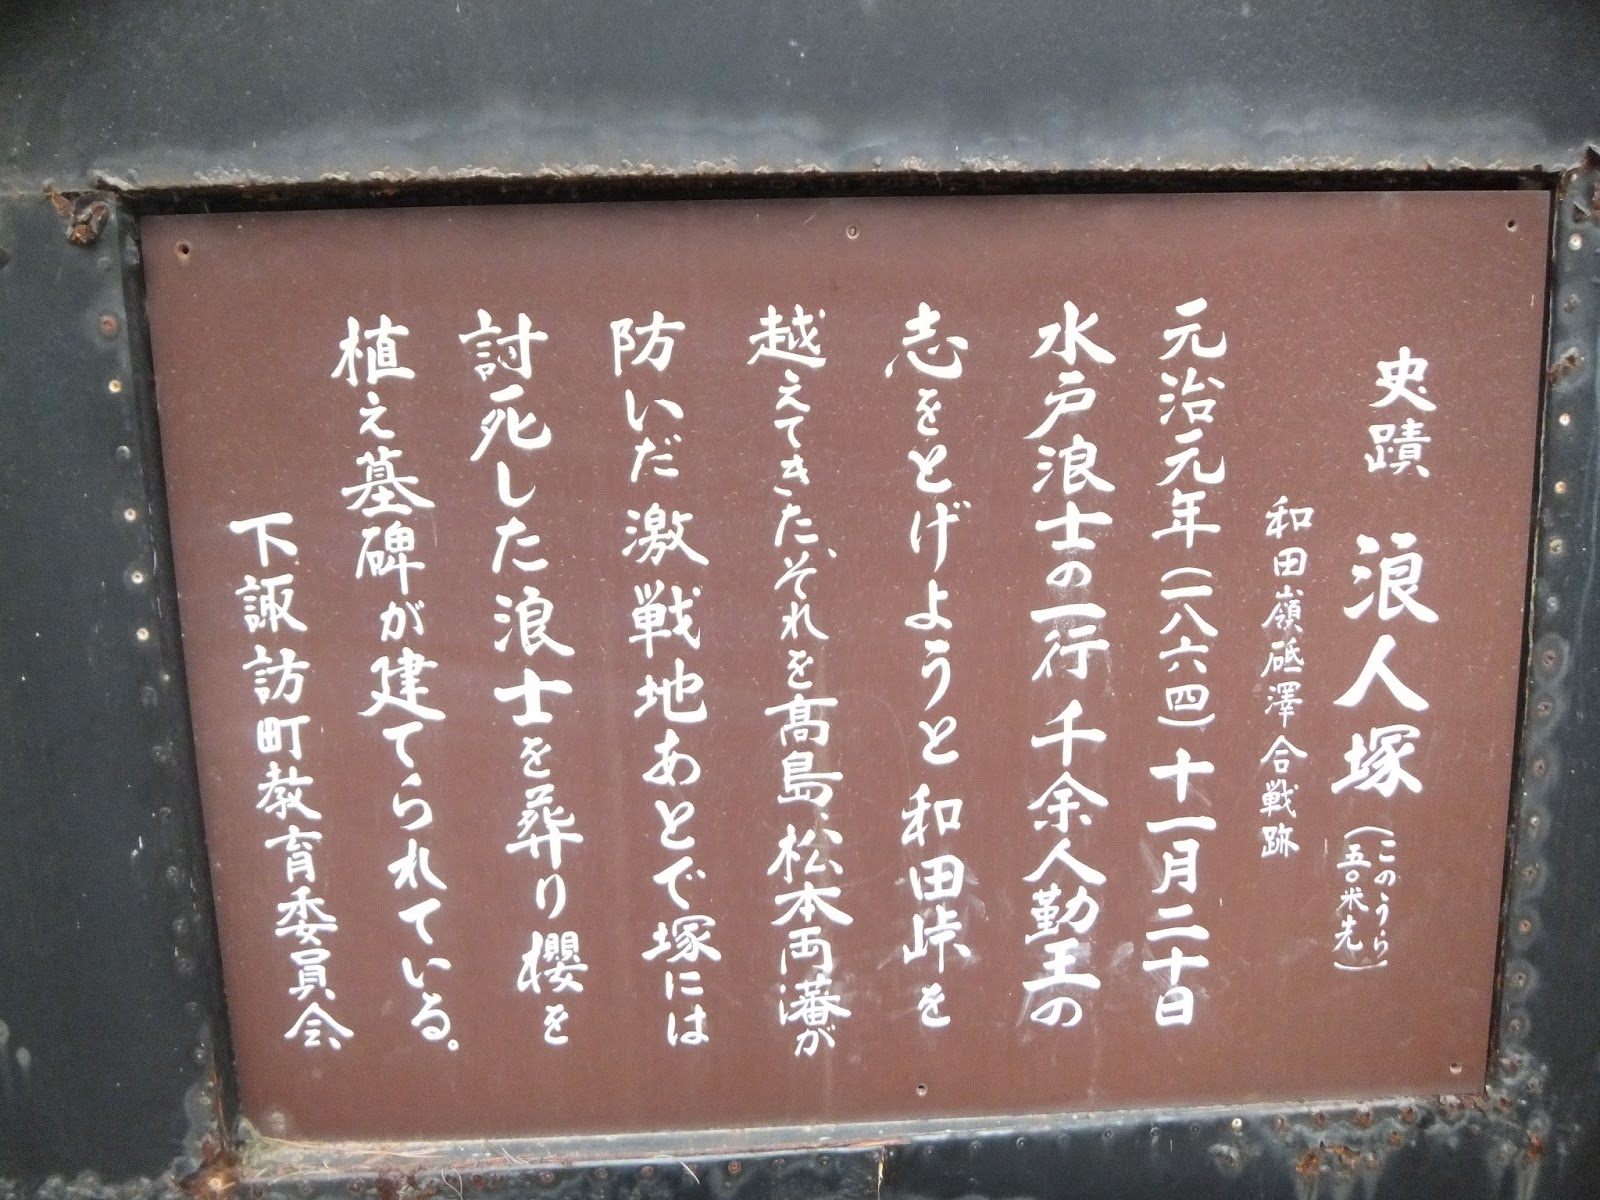 史蹟 浪人塚(このうら五〇米先)
和田嶺砥澤合戦跡
元治元年(一八六四)十一月二十日
水戸浪士の一行千余人勤王の
志をとげようと和田峠を
越えてきた、それを高島、松本両藩が
防いだ激戦地あとで塚には
討死した浪士を葬り櫻を
植え墓碑が建てられている。
下諏訪町教育委員会